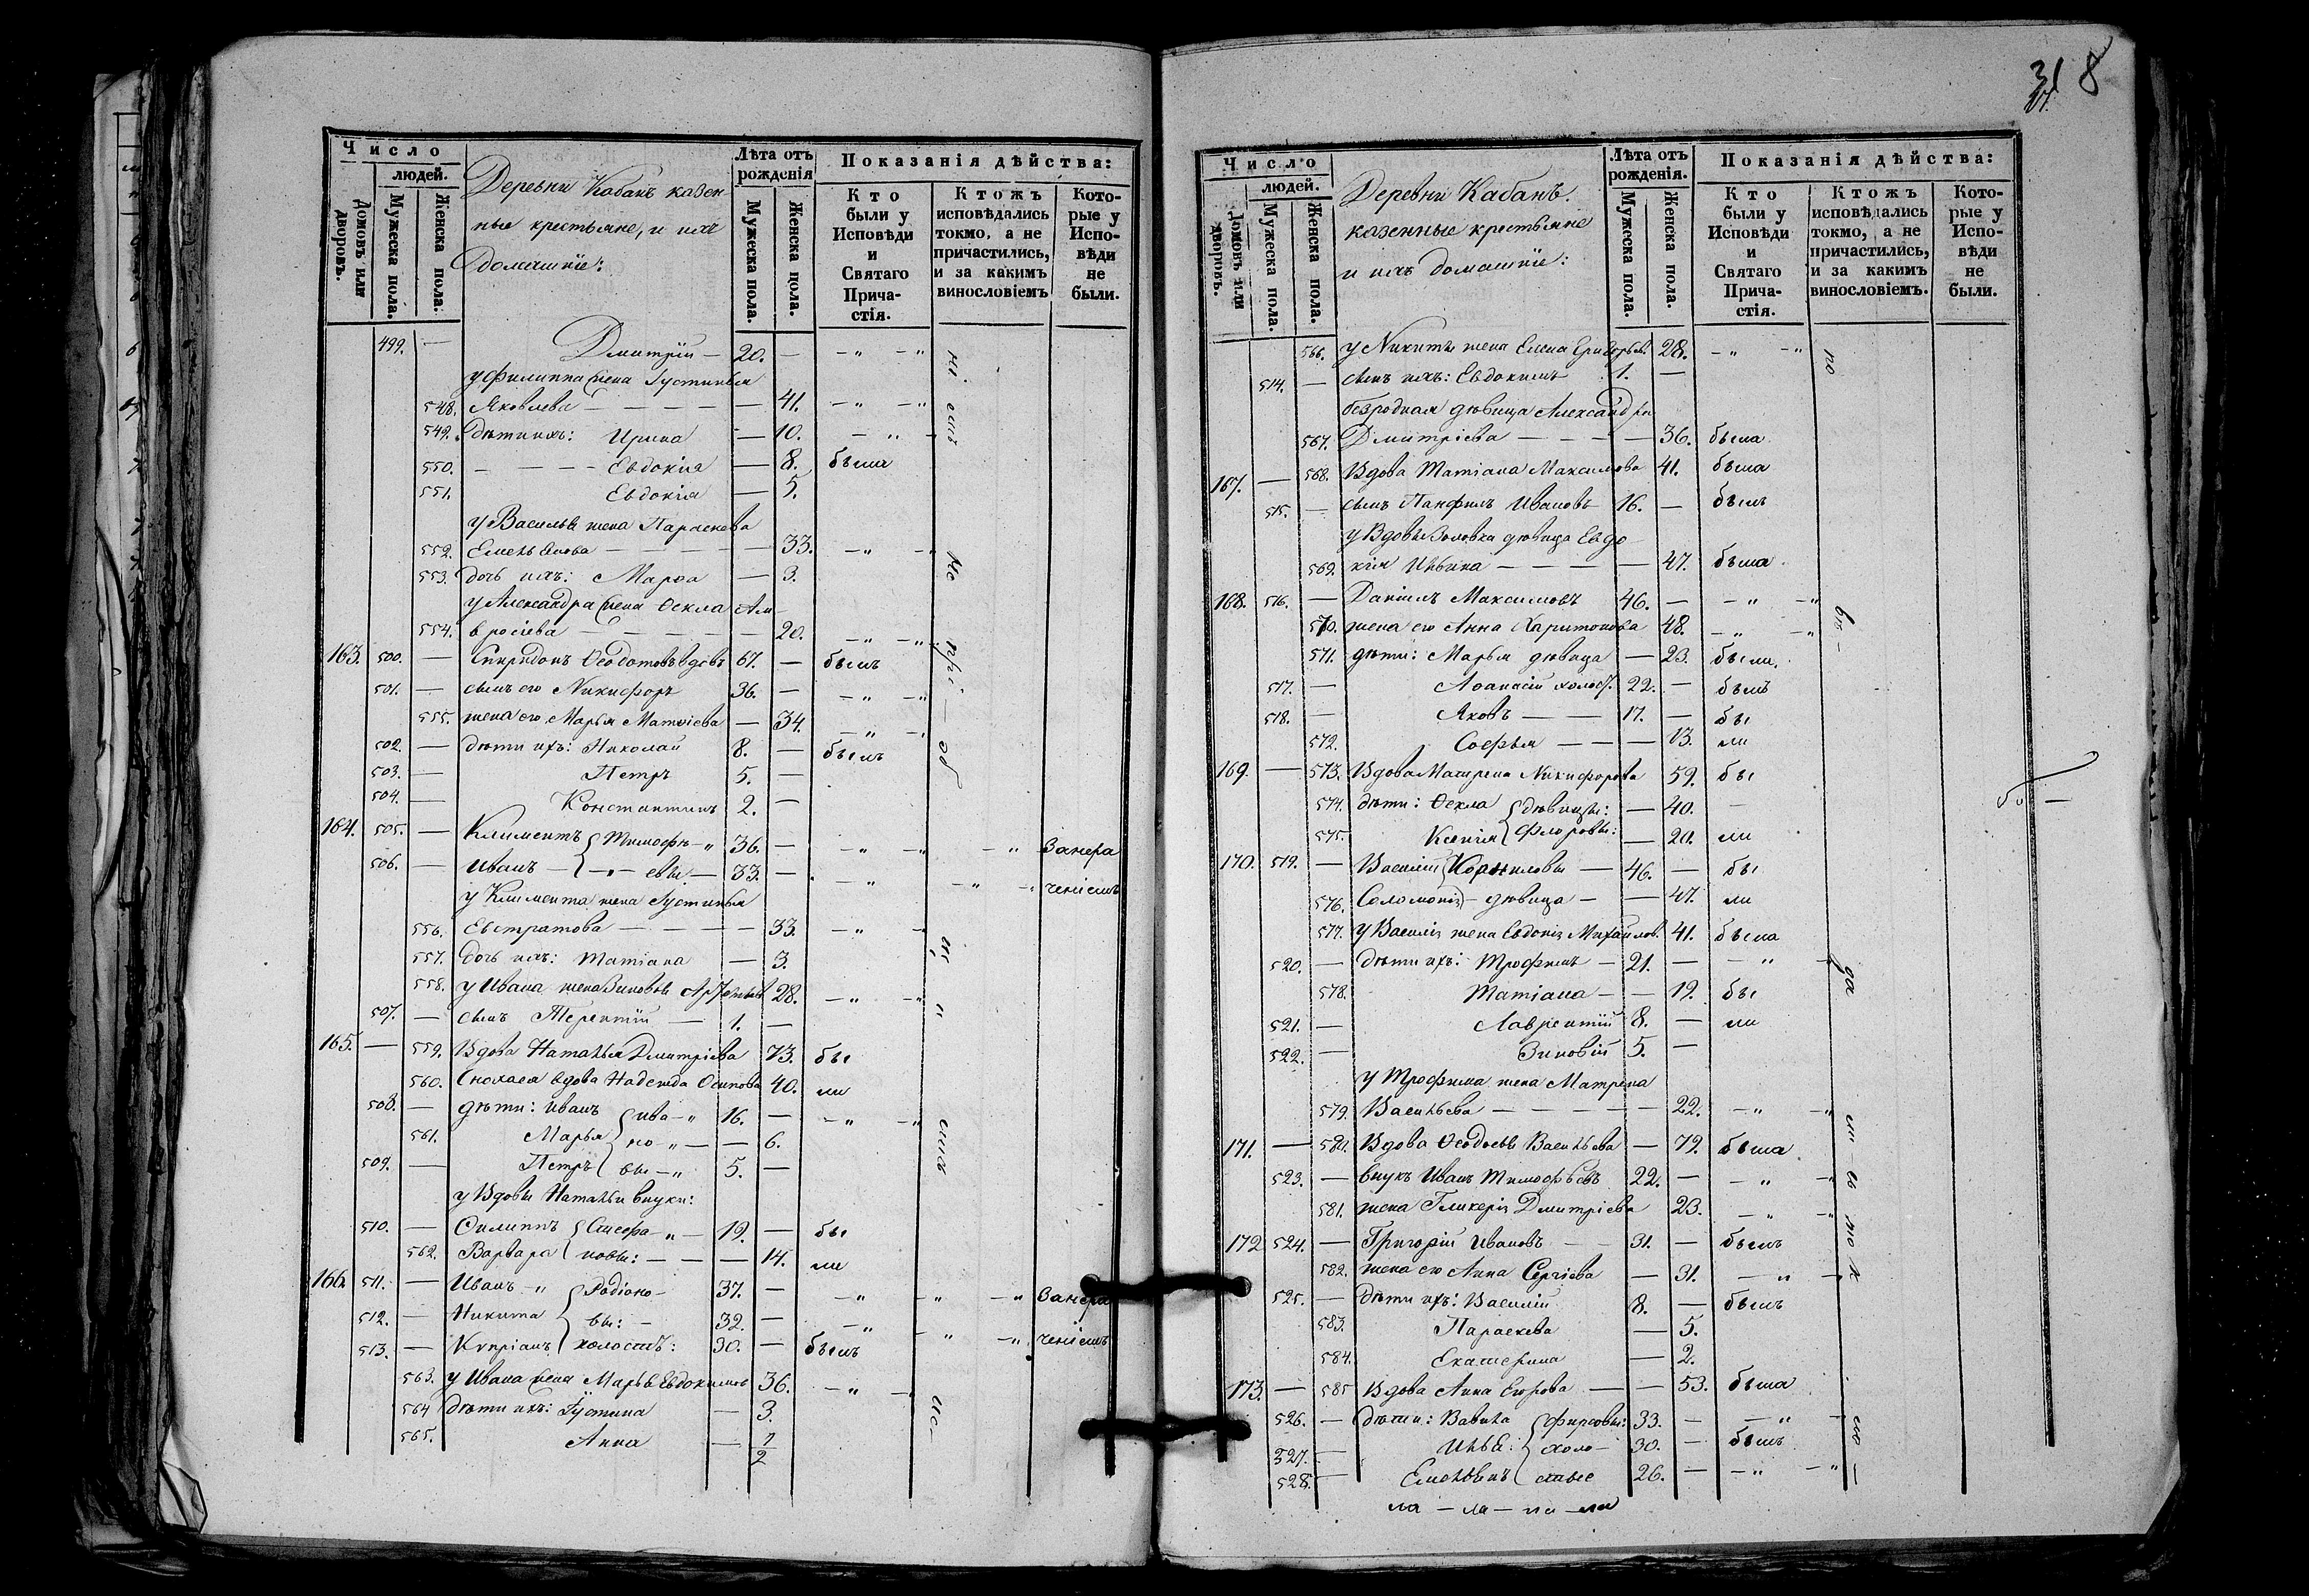 31 8
Число
людей.
Домовъ или дворовъ.
Мужеска пола.
Женска пола.
Деревни Кабанъ казен-
ные крестьяне, и ихъ
домашніе:
Лѣта отъ рожденія
Мужеска пола.
Женска пола.
Показанія дѣйства:
Кто были у Исповѣди и Святаго Прича-стія.
Ктожъ исповѣдались токмо, а не причастились, и за какимъ винословіемъ
Кото-рые у Испо-вѣди не были.
499. — Дмитрій — 20. — —"—"
у Филиппа жена Іустинья
548. Яковлева — — — — — 41. —"—"
549. Дѣти ихъ: Ирина — 10. —"—
550. — — — Евдокія — 8. была
551. Евдокія — 5.
у Василья жена Параскева
552. Емельянова — — — — 33. —"—"
553. дочь ихъ: Марѳа — 3.
у Александра жена Ѳекла Ам-
554. вросіева — — — — — 20. —"—"
163. 500. — Спиридонъ Ѳеодотовъ вдовъ 67. — былъ
501. — сынъ его Никифоръ 36. — —"—"
555. жена его Марья Матвіева — 34. —"—
502. — дѣти ихъ: Николай 8. — былъ
503. — Петръ 5. —
504. — Константинъ 2. —
164. 505. — Климентъ Тимофѣ-" 36. — —"—" —" Занера
506. — Иванъ —"— евы — 33. — —" —"— ченіемъ
у Климента жена Іустинья
556. Евстратова — — — — 33. —"—
557. дочь ихъ: Татіана — 3.
558. у Ивана жена Зиновья 28. —"—"
507. — сынъ Терентій — 1. —
165. — 559. Вдова Наталья Дмитріева 73. бы
560. Сноха ея вдова Надежда Осипова 40. ли
508. — дѣти: Иванъ ива-" 16. — —"—"
561. Марья но-" — — 6.
509. — Петръ вы-" 5. —
у Вдовы Натальи внуки:
510. — Филиппъ -"— 19. — бы
562. Варвара новы: — — — 14. ли
166. 511. — Иванъ-" Родіоно- 37. — —" —" —" Занера
512. — Никита вы: — 32. — —" —" —" ченіемъ
513. — Кипріанъ холостъ: 30. — былъ
563. у Ивана жена Марья Евдокимов 36. —"—
564 дѣти ихъ: Іустина — 3.
565. Анна — 1/2
Число
людей.
Домовъ или дворовъ.
Мужеска пола.
Женска пола.
Деревни Кабанъ.
казенные крестьяне
и ихъ домашніе:
Лѣта отъ рожденія.
Мужеска пола.
Женска пола.
Показанія дѣйства:
Кто были у Исповѣди и Святаго Прича-стія.
Ктожъ исповѣдались токмо, а не причастились, и за какимъ винословіемъ.
Кото-рые у Испо-вѣди не были.
566. у Никиты жена Елена Григорьев. 28. —"—"
514. — сынъ ихъ: Евдокимъ 1. —
безродная дѣвица Александра
567. Дмитріева — — — — 36. была
167. — 568. Вдова Татіана Максимова 41. была
515. — сынъ Панфилъ Ивановъ 16. — былъ
у Вдовы золовка дѣвица Евдо
569. кія Ильина — — — — 47. была
168. 516. — Даніилъ Максимовъ 46. — —"—"
570. жена его Анна Харитонова 48. —"—"
571. дѣти: Марья дѣвица — 23. были.
517. — Аѳанасій холост. 22. — былъ
518. — Яковъ — — 17. — бы
572. Софья — — — 13. ли
169. — 573. Вдова Матрена Никифорова 59. бы
574. дѣти: Ѳекла дѣвицы: — 40. —
575. Ксенія Флоровы: — 20. ли
170. 519. — Василій Корниловы — 46. — бы
576. Соломонія — дѣвица — — 47. ли
577. у Василія жена Евдокія Михайлов. 41. была
520. — дѣти ихъ: Трофимъ — 21. — —"—
578. Татіана — — 19. бы
521. — Лаврентій 8. — ли
522. — Зиновій 5. —
у Трофима жена Матрена
579. Васильева — — — — — 22. —"—"
171. — 580. Вдова Ѳеодосья Васильева — 79. была
523. — внукъ Иванъ Тимофѣевъ 22. — —"—"
581. жена Гликерія Дмитріева 23. —"—"
172 524. — Григорій Ивановъ — 31. — былъ
582. жена его Анна Сергіева — 31. —"—
525. — дѣти ихъ: Василій 8. — былъ
583. Параскева — 5.
584. Екатерина — 2.
173. — 585 Вдова Анна Егорова — — 53. была
526. — дѣти: Вавила Фирсовы: 33. — —"—
527. — Илья: холо- 30. — былъ
528. — Емельянъ стые 26. — —"—"